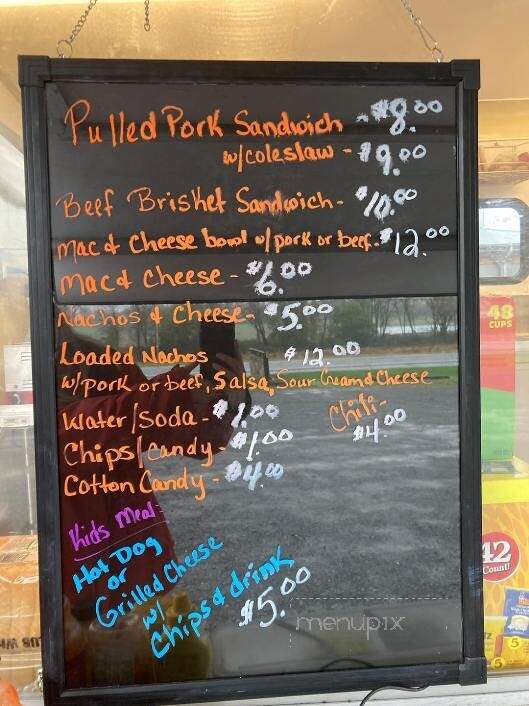 Pulled Pork Sandwich - $8.00
w/coleslaw - $9.00
Beef Brisket Sandwich - $10.00
Mac & Cheese bowl w/pork or beef - $12.00
Mac & Cheese - $6.00
Nachos & Cheese - $5.00
Loaded Nachos $12.00
w/pork or beef, Salsa, Sour Cream & Cheese
Water/Soda - $1.00
Chili -
$4.00
Chips/Candy - $1.00
Cotton Candy - $4.00
Kids Meal
Hot Dog
or
Grilled Cheese
w/
Chips & drink
$5.00
menupix
48
CUPS
42
Count!
5
5